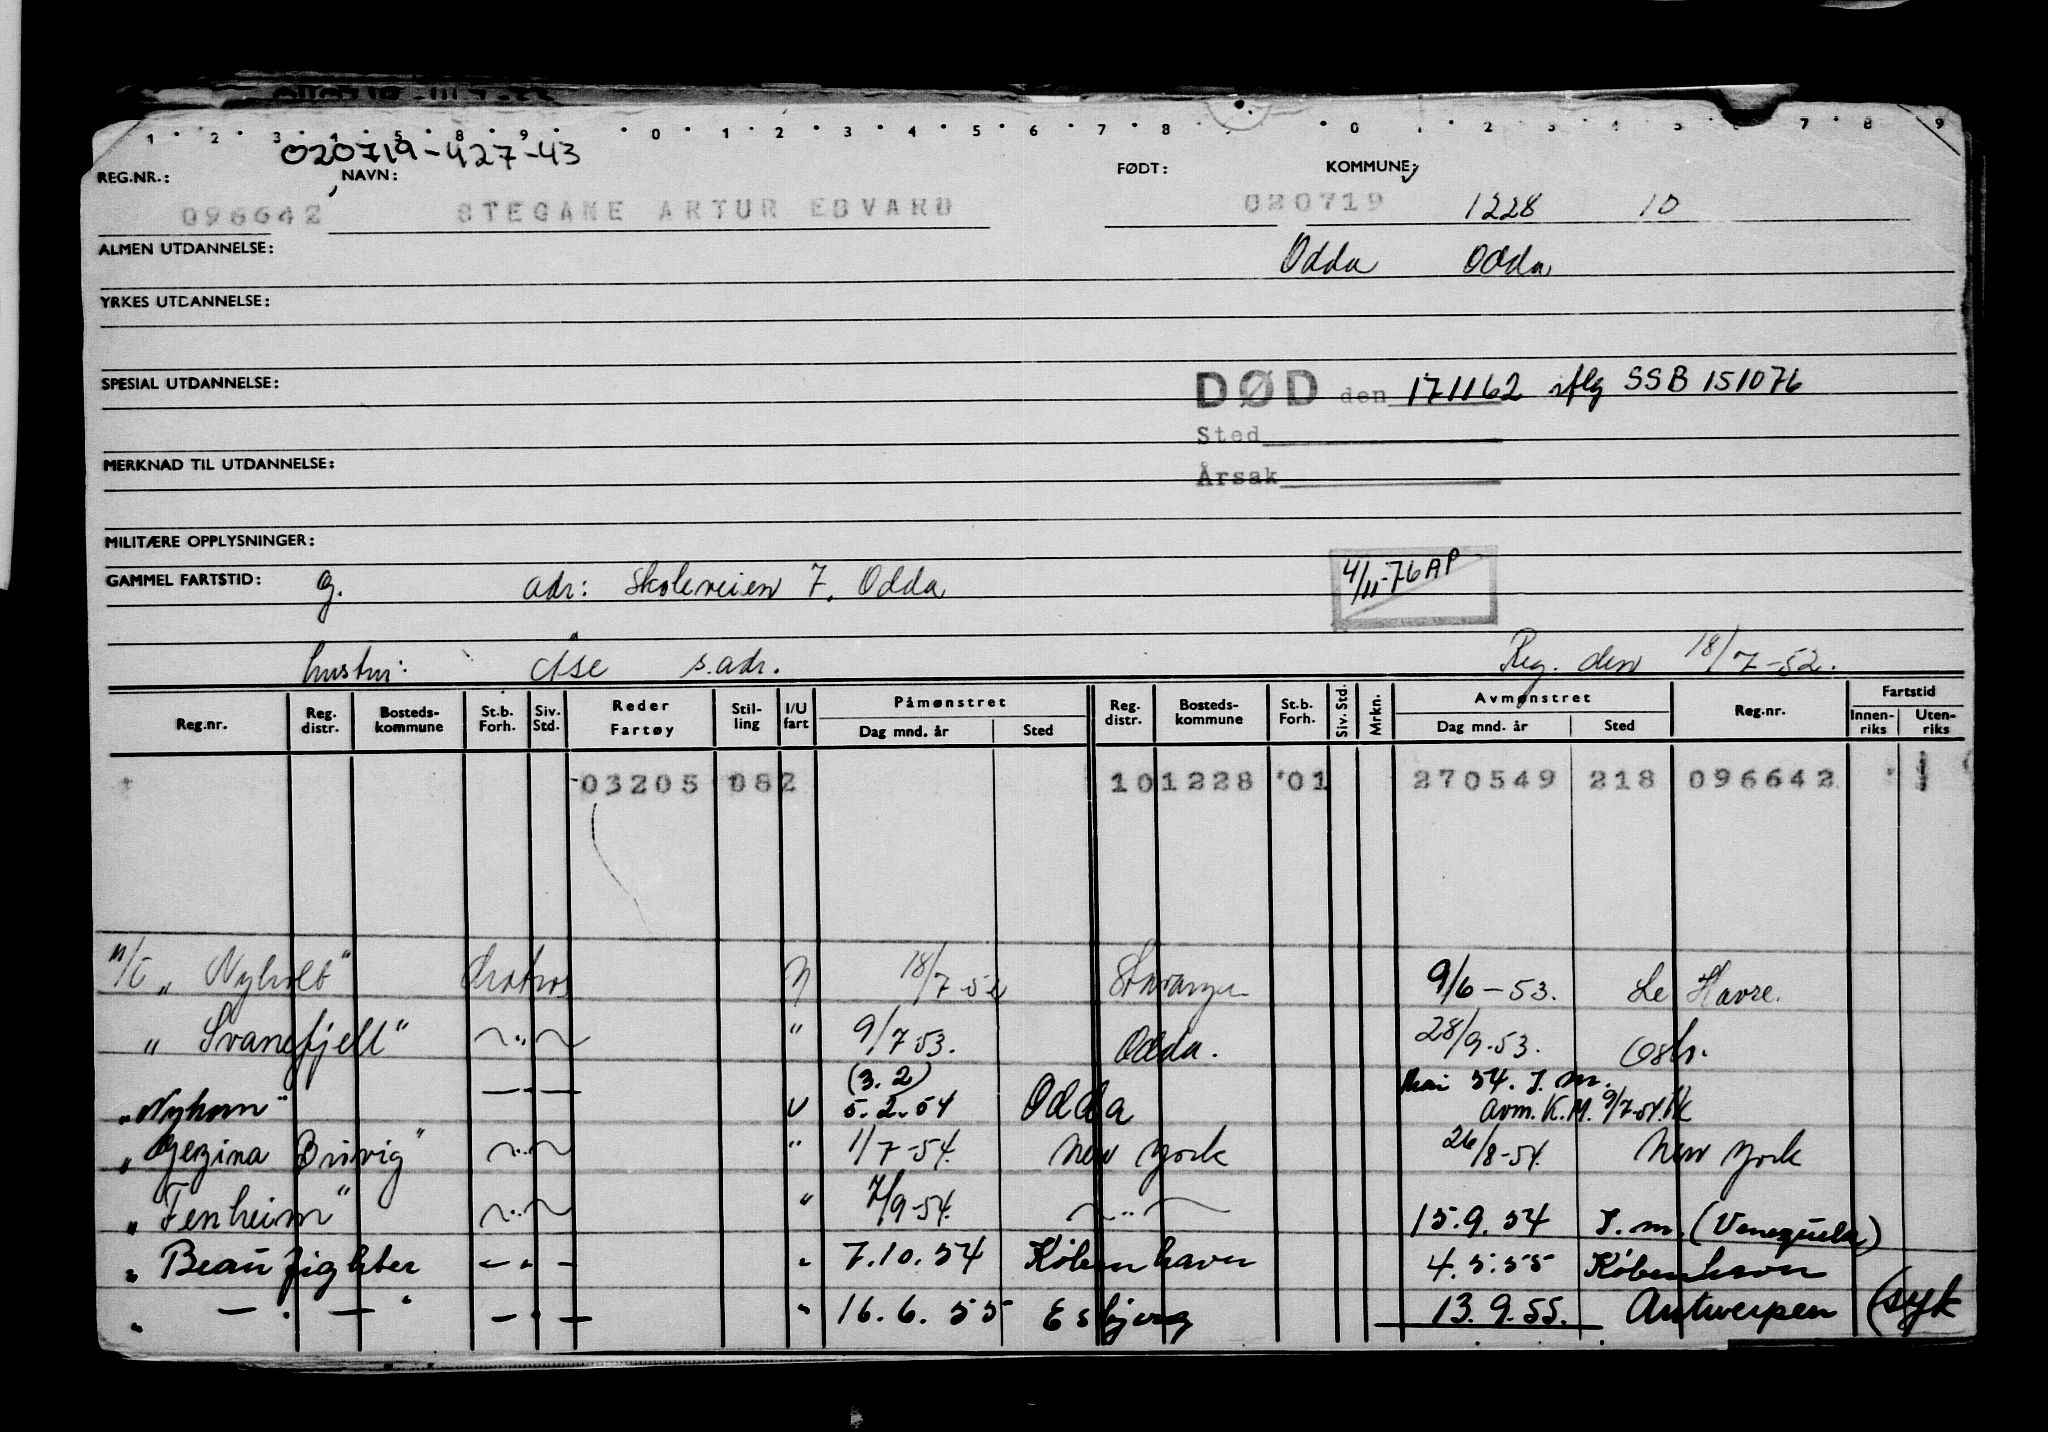 1 2 3 4 5 8 9 0 1 2 3 4 5 6 7 8 0 2 3 4 5 6 7 8 9
020719-427-43
REG.NR.: NAVN: FØDT: KOMMUNE:
096642 STEGANE ARTUR EDVARD 020719 1228 10
ALMEN UTDANNELSE: Odda Odda
YRKES UTDANNELSE:
SPESIAL UTDANNELSE: DØD den 171162 iflg SSB 151076
Sted
MERKNAD TIL UTDANNELSE:
Årsak
MILITÆRE OPPLYSNINGER:
GAMMEL FARTSTID: G. adr: Skoleveien 7, Odda 4/11-76 AP
hustru: Åse s.adr. Reg. den 18/7-52.
Reg.nr. Reg. distr. Bosteds- kommune St.b. Forh. Siv. Std. Reder Fartøy Stil- ling I/U fart Påmønstret Dag mnd. år Sted Reg. distr. Bosteds- kommune St.b. Forh. Siv. Std. Mrkn. Avmønstret Dag mnd. år Sted Reg.nr. Fartstid Innen- riks Uten- riks
03205 082 101228 01 270549 218 096642 1
"Nyholt" 18/7-52 Stavanger 9/6-53. Le Havre.
" Svanefjell" " 9/7 53. Odda. 28/9-53. Oslo.
(3.2) mai 54. I.M.
"Nyhorn" U 5.2.54 Odda avm. K.M. 9/7-54
"Gezina Brøvig" " 1/7-54. New York 26/8-54. New York
"Fenheim" " 7/9-54. — " — 15.9.54 I.M. (Venezuela)
" Beaufighter — " — " 7.10.54 København 4.5.55 København
" — " — — " — " 16.6.55 Esbjerg 13.9.55. Antwerpen (syk